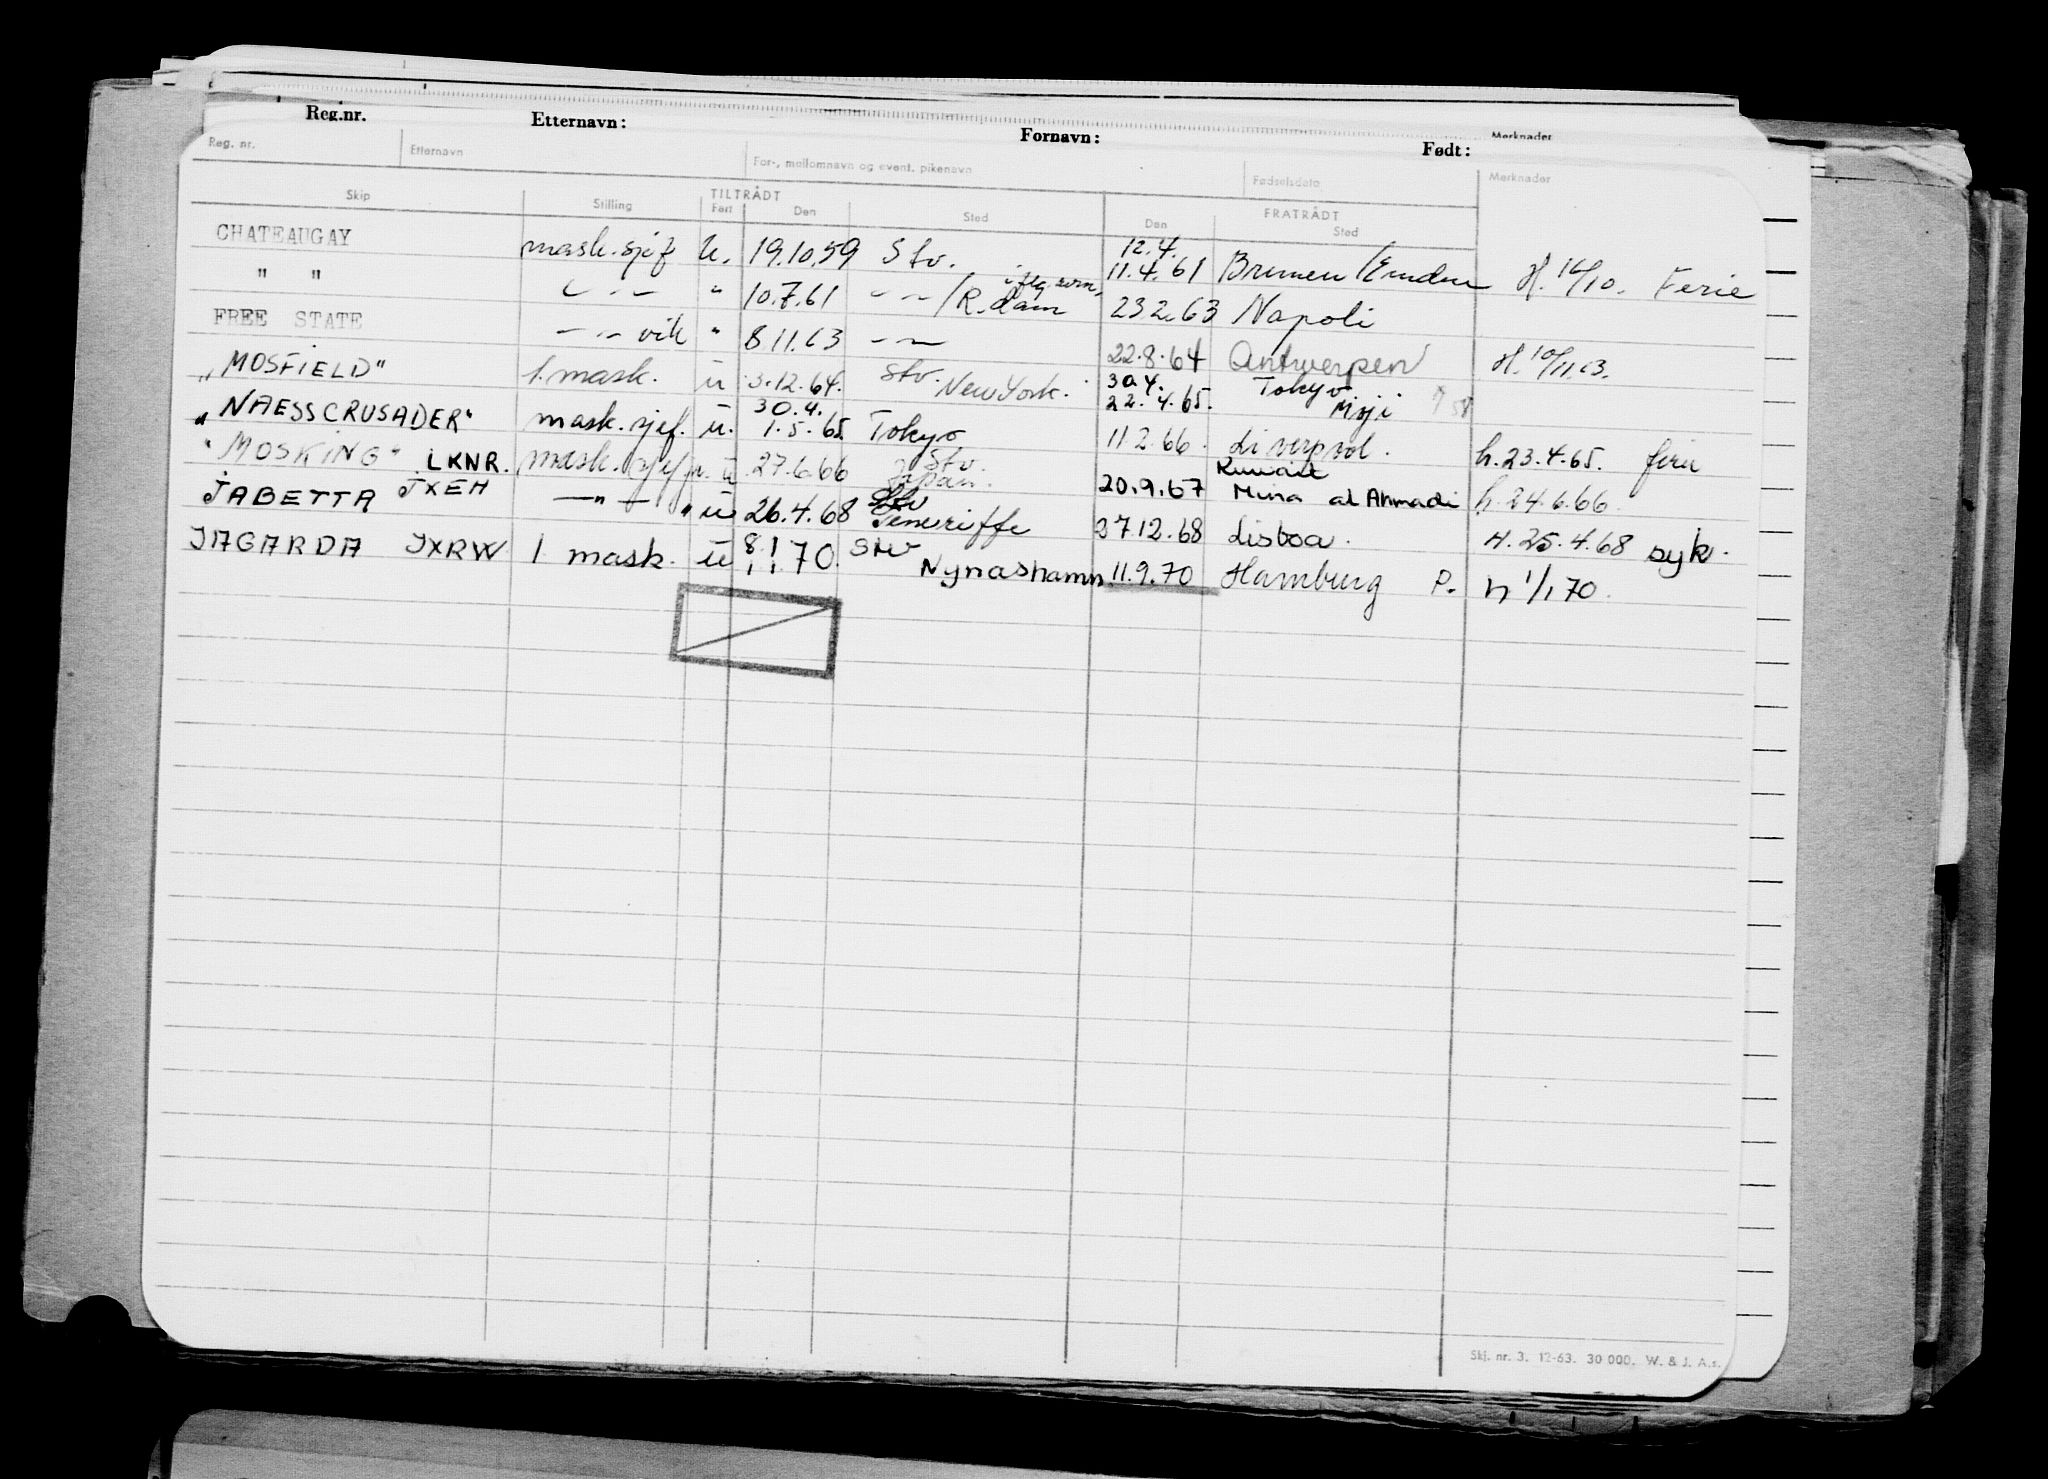 Reg.nr. Etternavn: Fornavn: Født: Merknader
Reg. nr. Etternavn For-, mellomnavn og event. pikenavn Fødselsdato Merknader
Skip Stilling TILTRÅDT FRATRÅDT
Fart Den Sted Den Sted
CHATEAUGAY mask.sjef u. 19.10.59 Stv. 12.4. 11.4.61 Bremen/Emden H. 16/10. Ferie
" " " 10.7.61 /R.dam 23.2.63 Napoli
FREE STATE vik " 8.11.63 22.8.64 Antwerpen H. 10/11.63.
„MOSFIELD" 1. mask. u 3.12.64. Stv. New York. 30.4. 22.4.65. Tokyo Moji
„NAESSCRUSADER" mask.sjef. u. 30.4. 1.5.65 Tokyo 11.2.66. Liverpool. h.23.4.65. ferie
"MOSKING" LKNR. mask.sjef u 27.6.66 Stv. Japan. 20.9.67 Kuwait Mina al Ahmadi h.24.6.66.
JABETTA JXEH —"— " u 26.4.68 Stv Teneriffe 27.12.68 Lisboa. H.25.4.68 syk.
JAGARDA JXRW 1 mask. u 8.1 1.1.70. Stv Nynashamn 11.9.70 Hamburg P. h 1/1 70.
Skj. nr. 3. 12-63. 30 000. W. & J. A.s.